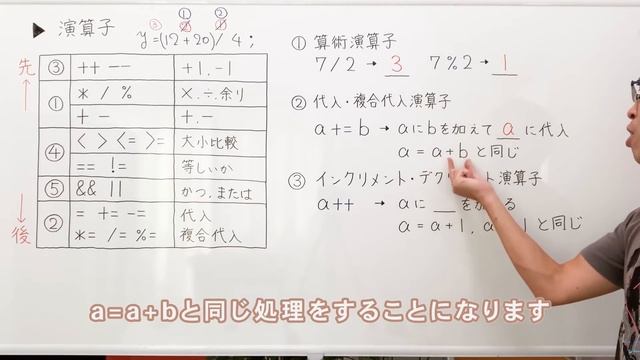 ▶ 演算子
① ②
③ ① ②
y=(12+20)/ 4 ;
先
③ ++ -- +1, -1
① * / % ×, ÷, 余り
+ - +, -
④ < > <= >= 大小比較
== != 等しいか
⑤ && || かつ、または
② = += -= 代入
*= /= %= 複合代入
後
① 算術演算子
7/2 → 3 7%2 → 1
② 代入・複合代入演算子
a+=b → aにbを加えて a に代入
a = a+b と同じ
③ インクリメント・デクリ
ト演算子
a++ → aに __ を加
る
a = a+1, a
1 と同じ
a=a+bと同じ処理をすることになります